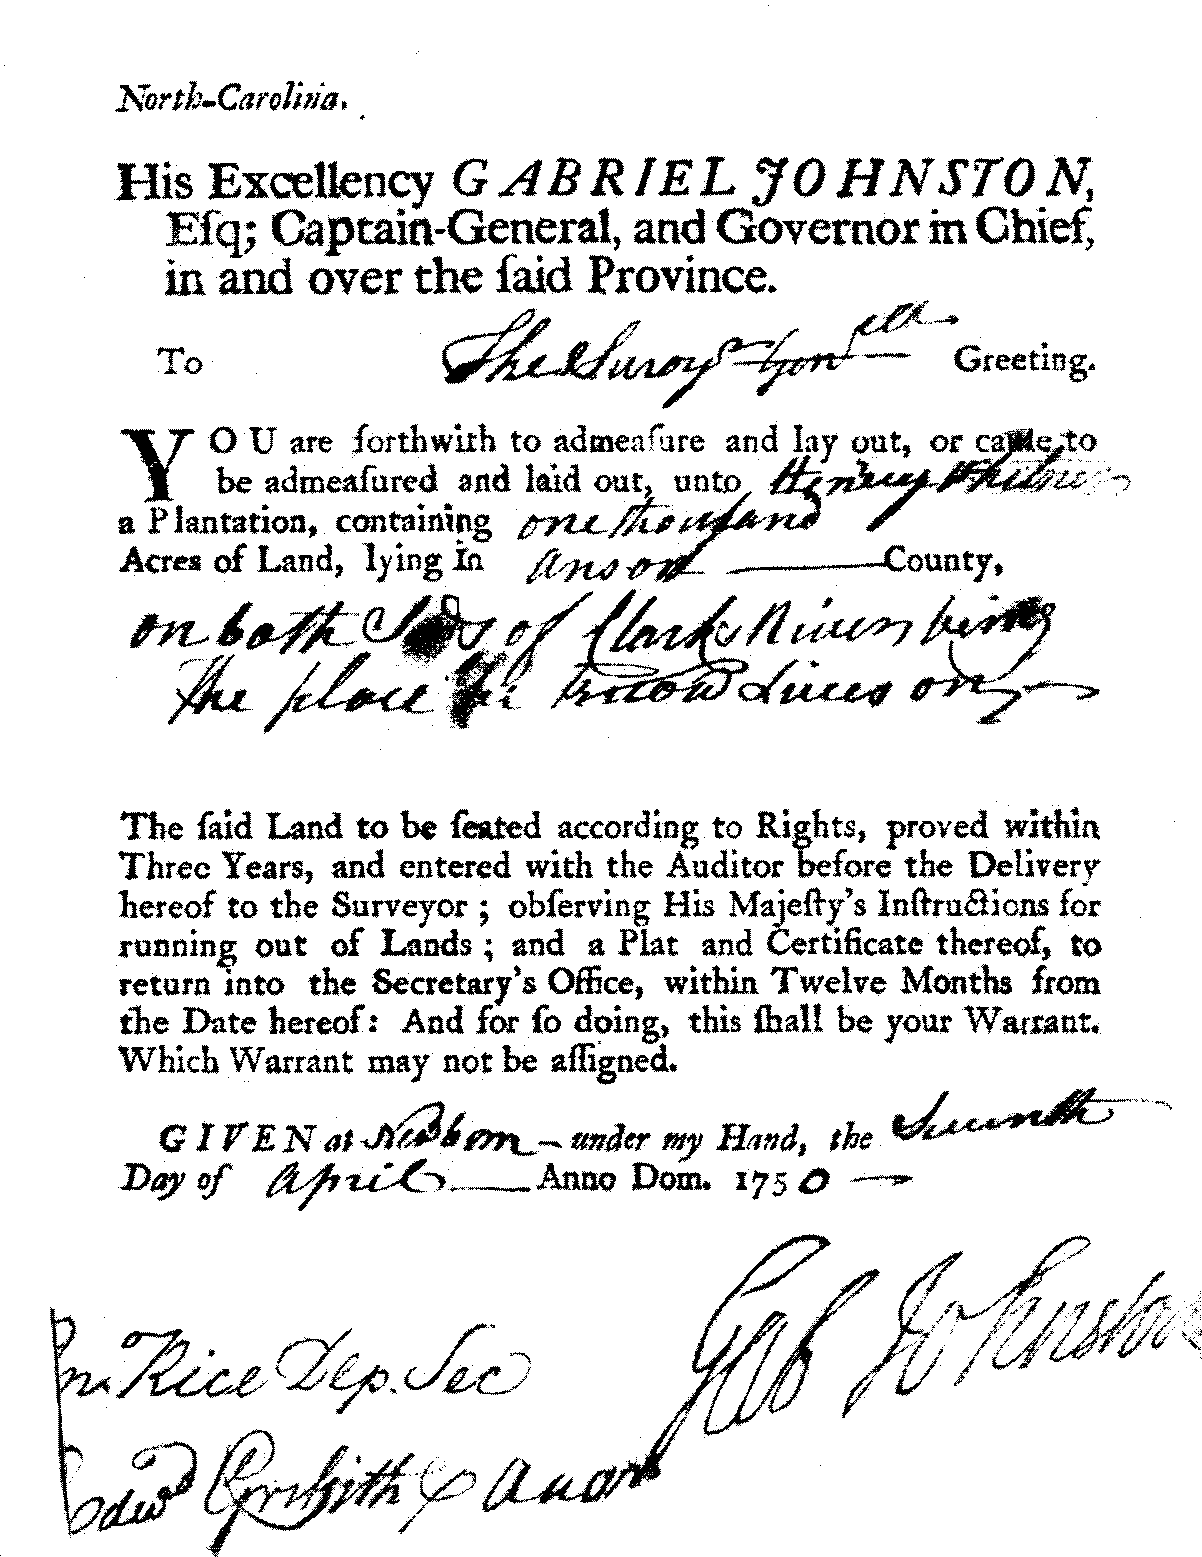 North-Carolina.
His Excellency GABRIEL JOHNSTON,
Eſq; Captain-General, and Governor in Chief,
in and over the ſaid Province.
To The Survyr Genll Greeting.
YOU are forthwith to admeaſure and lay out, or cauſe to
be admeaſured and laid out, unto Henry
a Plantation, containing one thousand
Acres of Land, lying in anson County,
on both Sids of Clarks River being
the place he Lives on
The ſaid Land to be ſeated according to Rights, proved within
Three Years, and entered with the Auditor before the Delivery
hereof to the Surveyor; obſerving His Majeſty's Inſtructions for
running out of Lands; and a Plat and Certificate thereof, to
return into the Secretary's Office, within Twelve Months from
the Date hereof: And for ſo doing, this ſhall be your Warrant.
Which Warrant may not be aſſigned.
GIVEN at Newbern under my Hand, the Seventh
Day of April Anno Dom. 1750
Gab Johnston
Rice Dep. Sec
Edwd Griffith